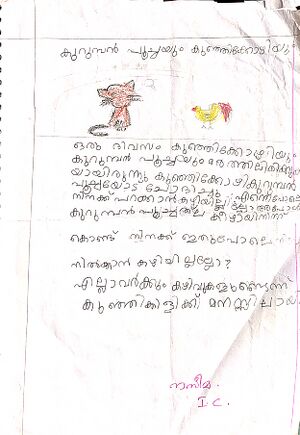 കുറുമ്പൻ പൂച്ചയും കുഞ്ഞിക്കോഴിയും
ഒരു ദിവസം കുഞ്ഞിക്കോഴിയും
കുറുമ്പൻ പൂച്ചയും മരത്തിലിരിക്കു
യായിരുന്നു കുഞ്ഞിക്കോഴി കുറുമ്പൻ
പൂച്ചയോട് ചോദിച്ചു
നിനക്ക് പറക്കാൻ കഴിയില്ല എന്നെപോലെ
കുറുമ്പൻ പൂച്ച തല കീഴായിനിന്ന്
കൊണ്ട് നിനക്ക് ഇതുപോലെ
നിൽക്കാൻ കഴിയില്ലല്ലോ?
എല്ലാവർക്കും കഴിവുകളുണ്ടെന്ന്
കുഞ്ഞിക്കിളിക്ക് മനസ്സിലായി
നസീമ
I C.